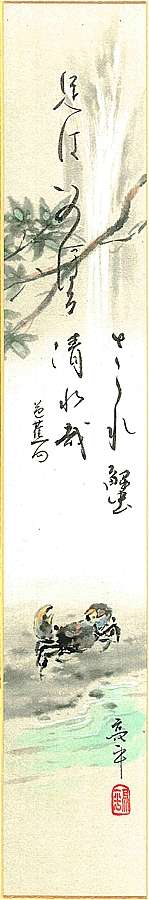 さゝれ蟹
足はひのほる
清水哉
芭蕉句